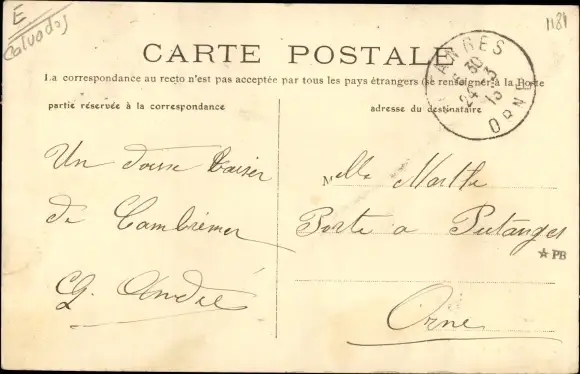 E
Calvados
1181
CARTE POSTALE
La correspondance au recto n'est pas acceptée par tous les pays étrangers (se renseigner à la Poste
partie réservée à la correspondance
adresse du destinataire
Un doux baiser
de Cambremer
André
Melle Marthe
Porte a Putanges
Orne
PB
24
3
13
ORNE